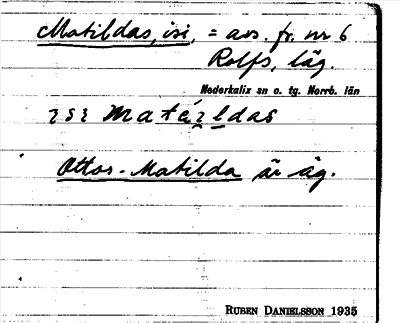 Matildas, isi, = avs. fr. nr 6
Rolfs, läg.
Nederkalix sn o. tg. Norrb. län
Ottos-Matilda är äg.
RUBEN DANIELSSON 1935